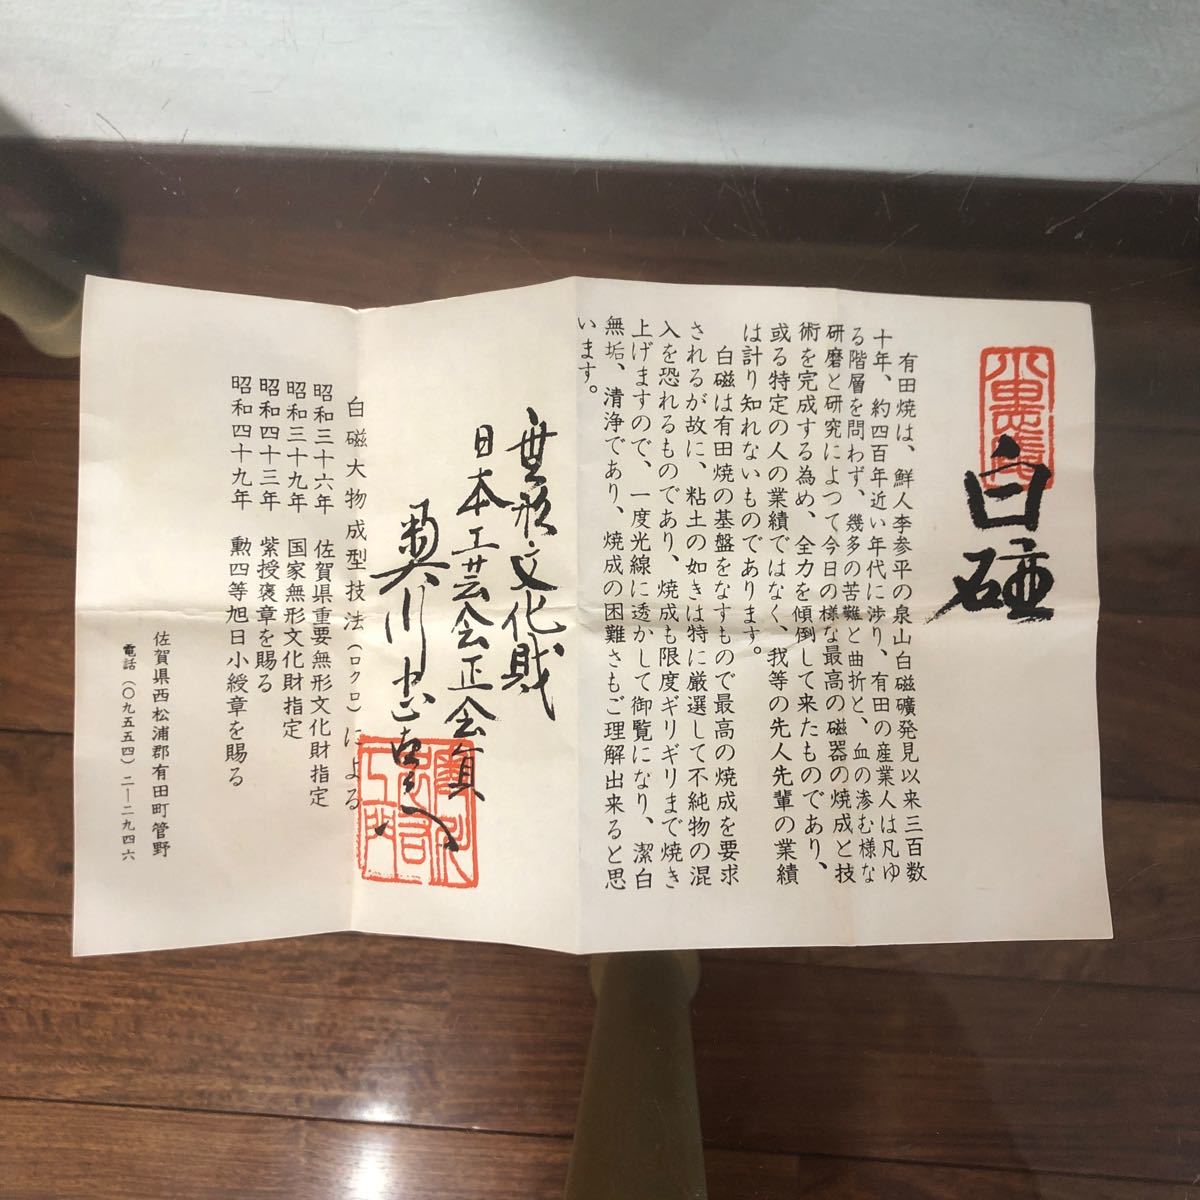 白磁
有田焼は、鮮人李参平の泉山白磁礦発見以来三百数
十年、約四百年近い年代に渉り、有田の産業人は凡ゆ
る階層を問わず、幾多の苦難と曲折と、血の滲む様な
研磨と研究によつて今日の様な最高の磁器の焼成と技
術を完成する為め、全力を傾倒して来たものであり、
或る特定の人の業績ではなく、我等の先人先輩の業績
は計り知れないものであります。
白磁は有田焼の基盤をなすもので最高の焼成を要求
されるが故に、粘土の如きは特に厳選して不純物の混
入を恐れるものであり、焼成も限度ギリギリまで焼き
上げますので、一度光線に透かして御覧になり、潔白
無垢、清浄であり、焼成の困難さもご理解出来ると思
います。
無形文化財
日本工芸会正会員
奥川忠右エ門
白磁大物成型技法（ロクロ）による
昭和三十六年 佐賀県重要無形文化財指定
昭和三十九年 国家無形文化財指定
昭和四十三年 紫授褒章を賜る
昭和四十九年 勲四等旭日小綬章を賜る
佐賀県西松浦郡有田町管野
電話（〇九五五四）二―二九四六